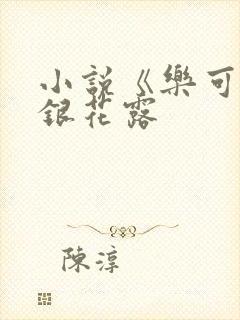 小說《樂可
銀花露
陳淳